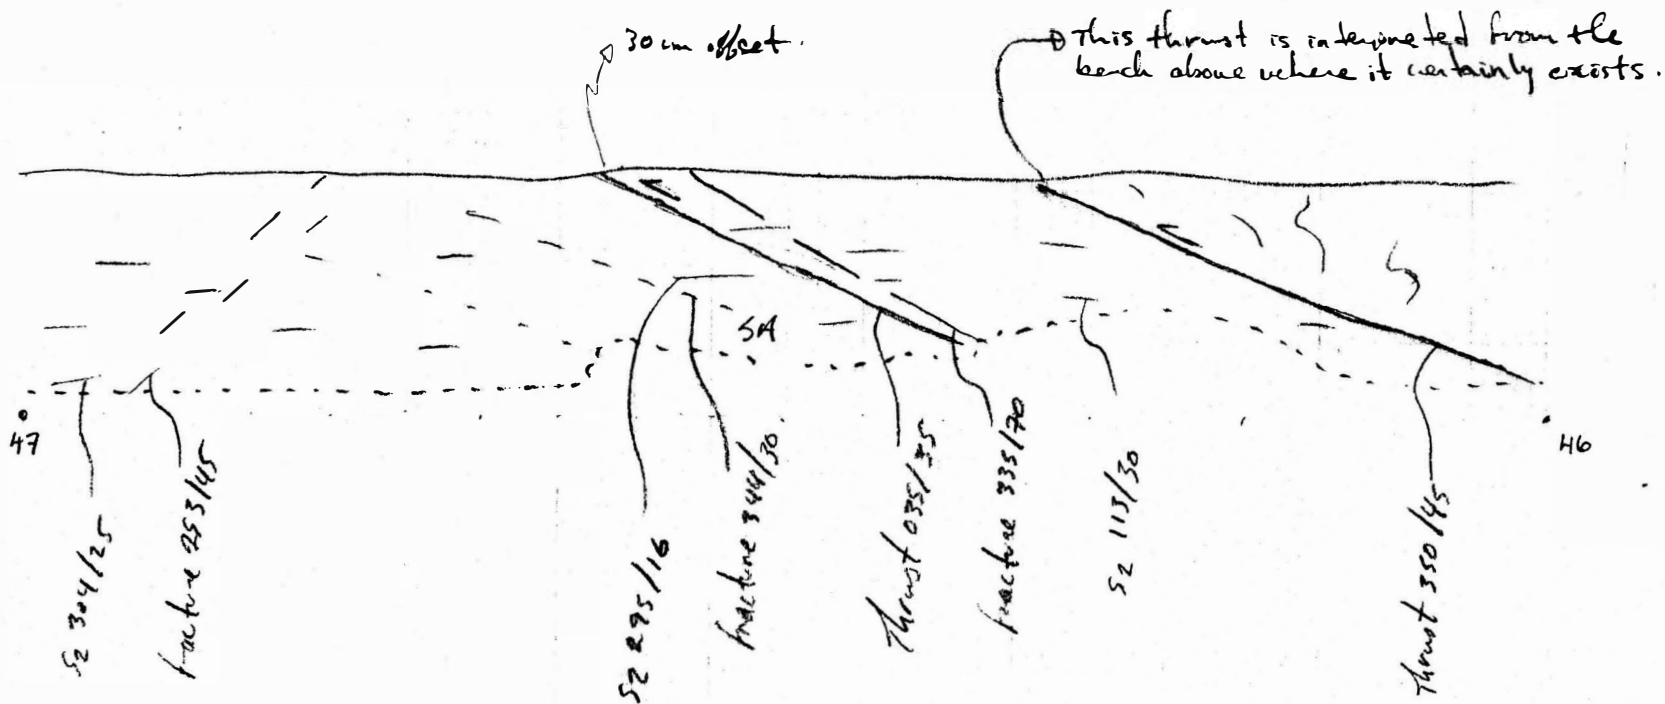 30 cm offset.
This thrust is interpreted from the
bench above where it certainly exists.
SA
47
46
S2 304/25
fracture 253/45
S2 295/16
fracture 344/30.
Thrust 035/35
fracture 335/70
S2 113/30
Thrust 350/45